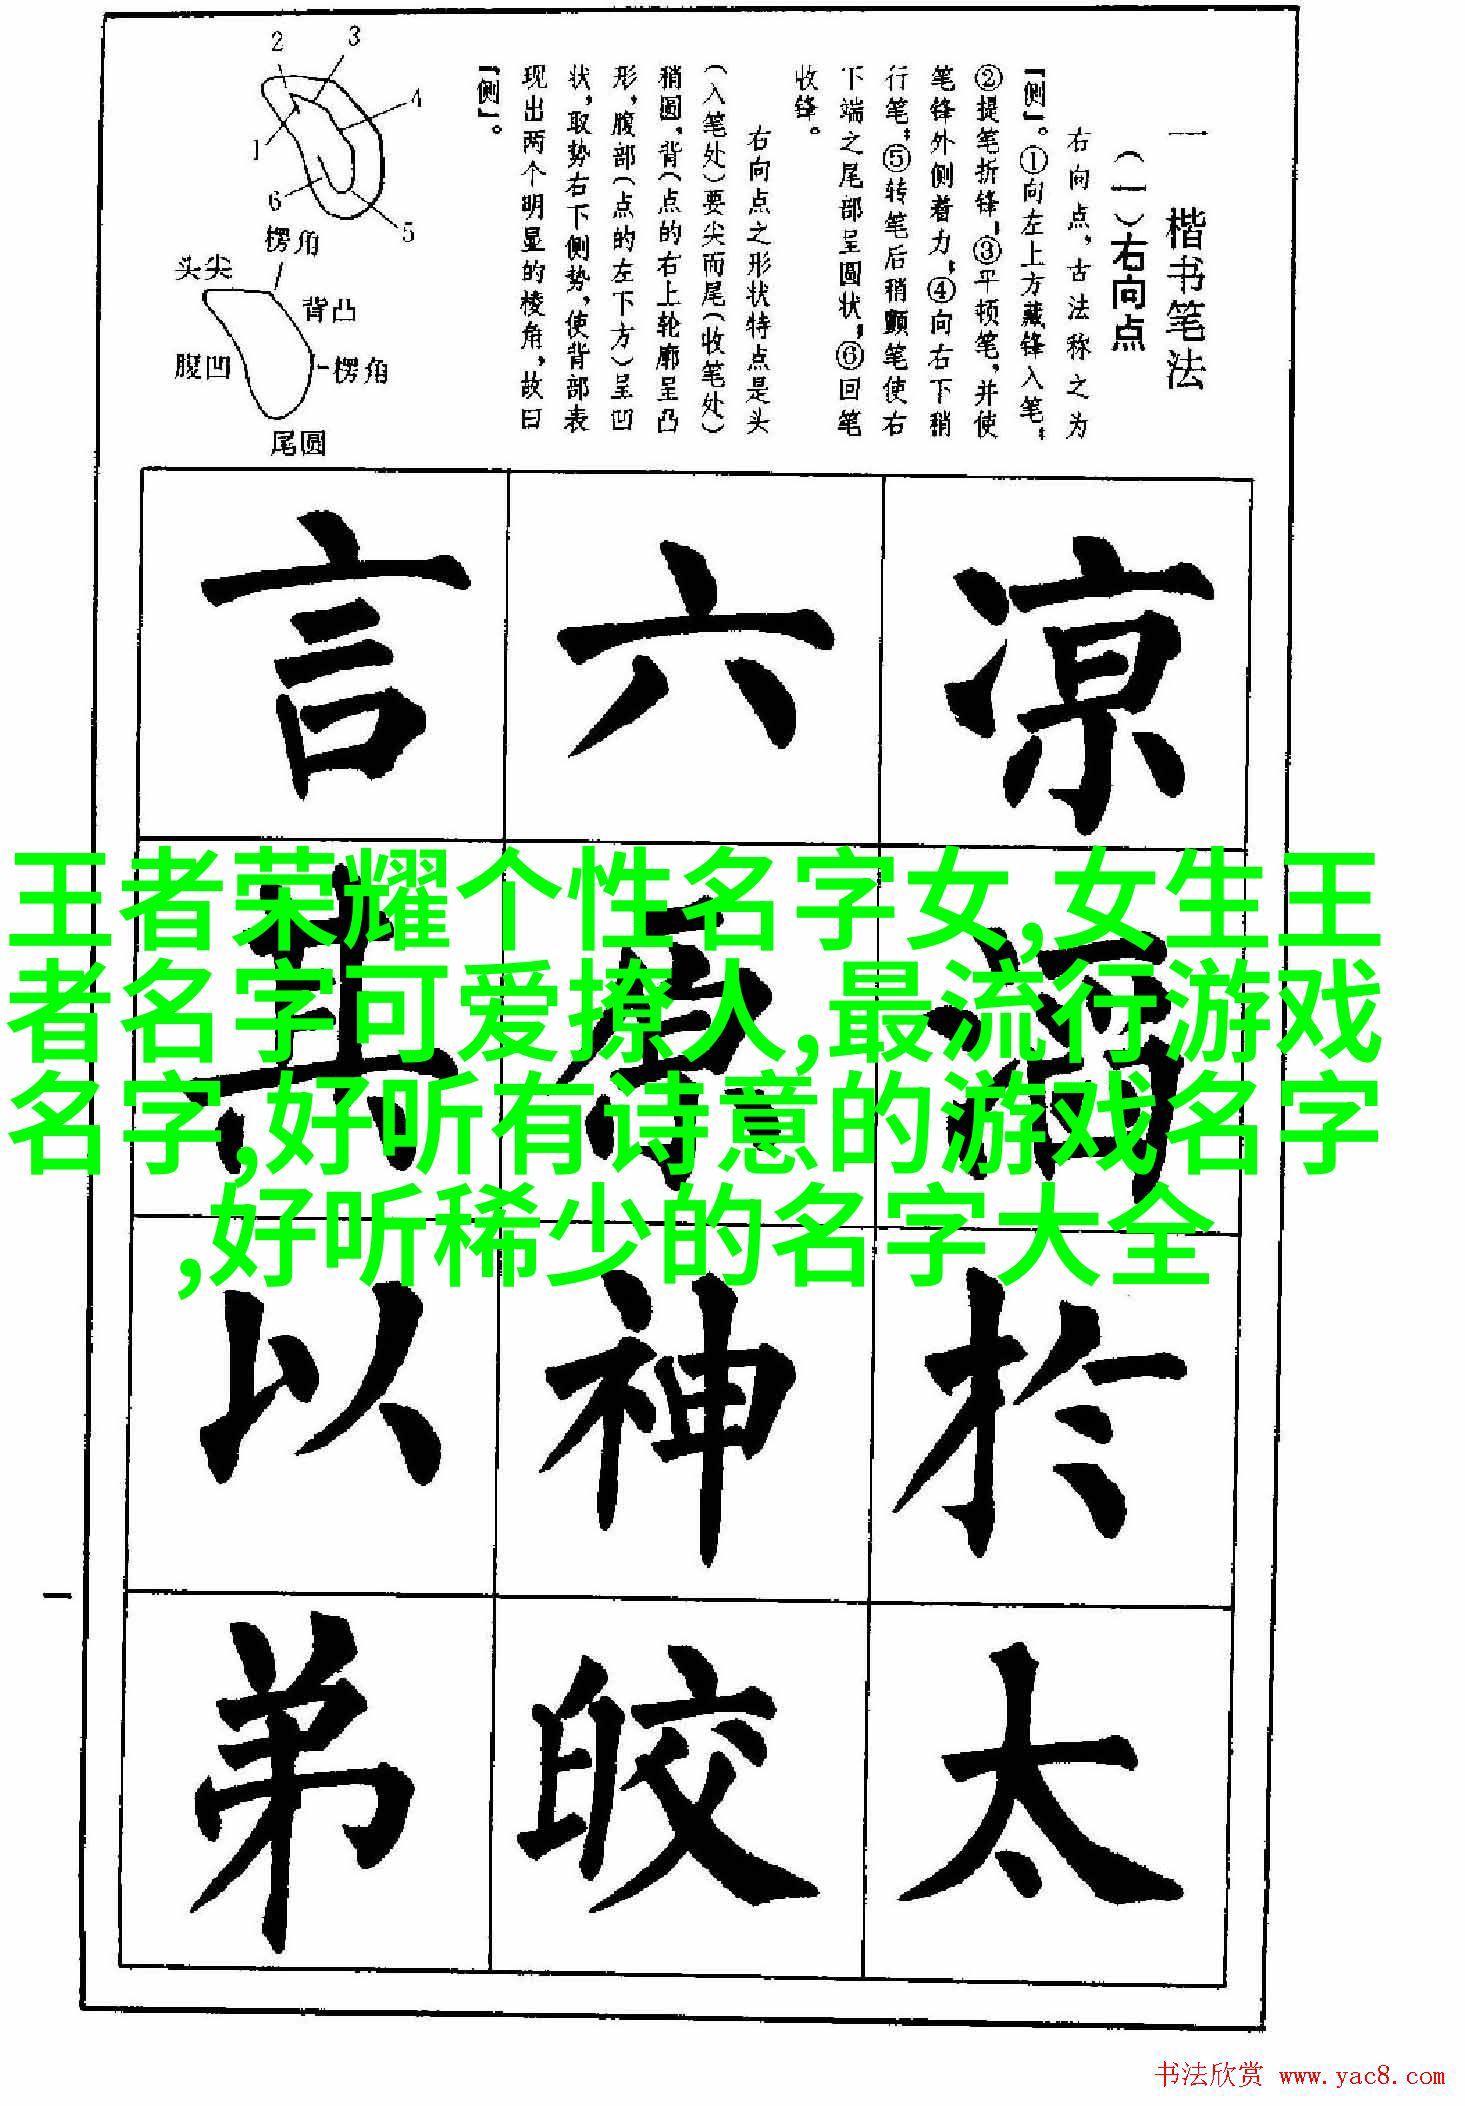 一 楷书笔法
(一)右向点
右向点，古法称之为
『侧』。①向左上方藏锋入笔；
②提笔折锋；③平顿笔，并使
笔锋外侧着力；④向右下稍
行笔；⑤转笔后稍颤笔使右
下端之尾部呈圆状；⑥回笔
收锋。
右向点之形状特点是头
(入笔处)要尖而尾(收笔处)
稍圆，背(点的右上轮廓呈凸
形，腹部(点的左下方)呈凹
状，取势右下侧势，使背部表
现出两个明显的棱角，故曰
『侧』。
2 3
4
1
6
5
楞角
头尖
背凸
腹凹
楞角
尾圆
凉 六 言
王者荣耀个性名字女,女生王
者名字可爱撩人,最流行游戏
名字,好听有诗意的游戏名字
,好听稀少的名字大全
於 神 以
太 皎 弟
一
书法欣赏 www.yac8.com